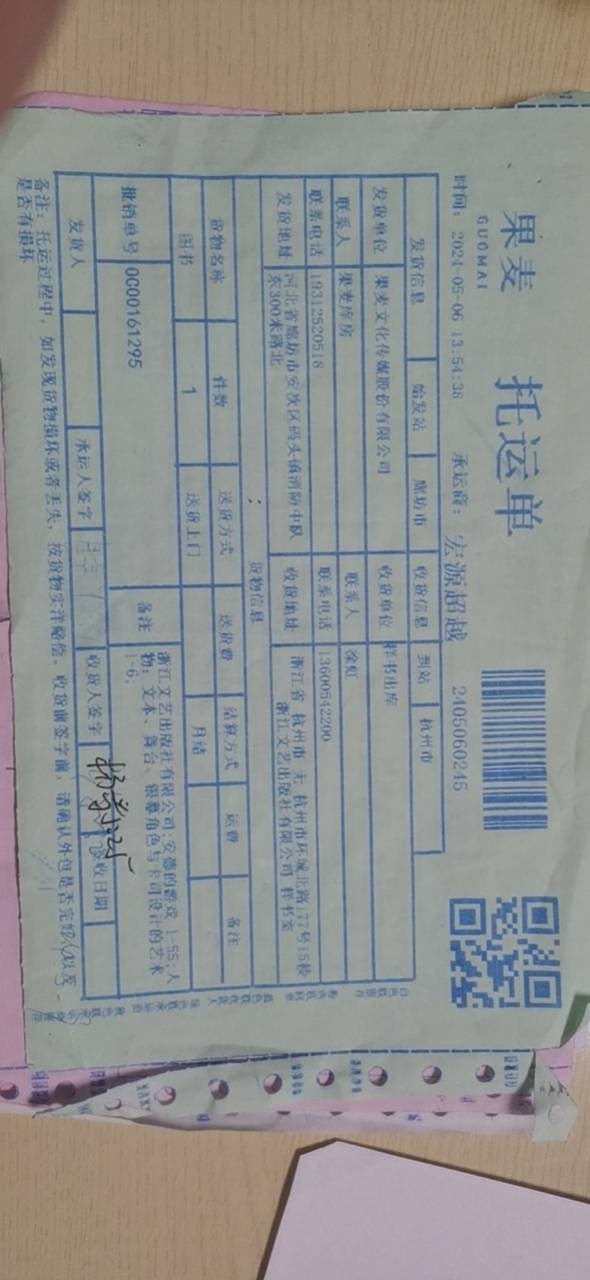 果麦 托运单
GUOMAI
时间: 2024-05-06 13:54:38 承运商: 宏源超越 2405060245
发货信息 始发站 廊坊市 收货信息 到站 杭州市
发货单位 果麦文化传媒股份有限公司 收货单位 样书出库
联系人 果麦库房 联系人 徐虹
联系电话 19312520518 联系电话 13600542200
发货地址 河北省廊坊市安次区码头镇消防中队 收货地址 浙江省 杭州市 无 杭州市环城北路177号15楼
东300米路北 浙江文艺出版社有限公司 样书室
货物信息
货物名称 件数 送货方式 送货费 结算方式 运费 备注
图书 1 送货上门 月结
批销单号 0C00161295 备注 浙江文艺出版社有限公司:安德的游戏 1-55;人
物,文本、舞台、银幕角色与卡司设计的艺术
1-6;
发货人 承运人签字 收货人签字 签收日期
备注: 托运过程中,如发现货物损坏或者丢失,按货物实洋赔偿、收货前签字前,请确认外包是否完好以及
是否有损坏